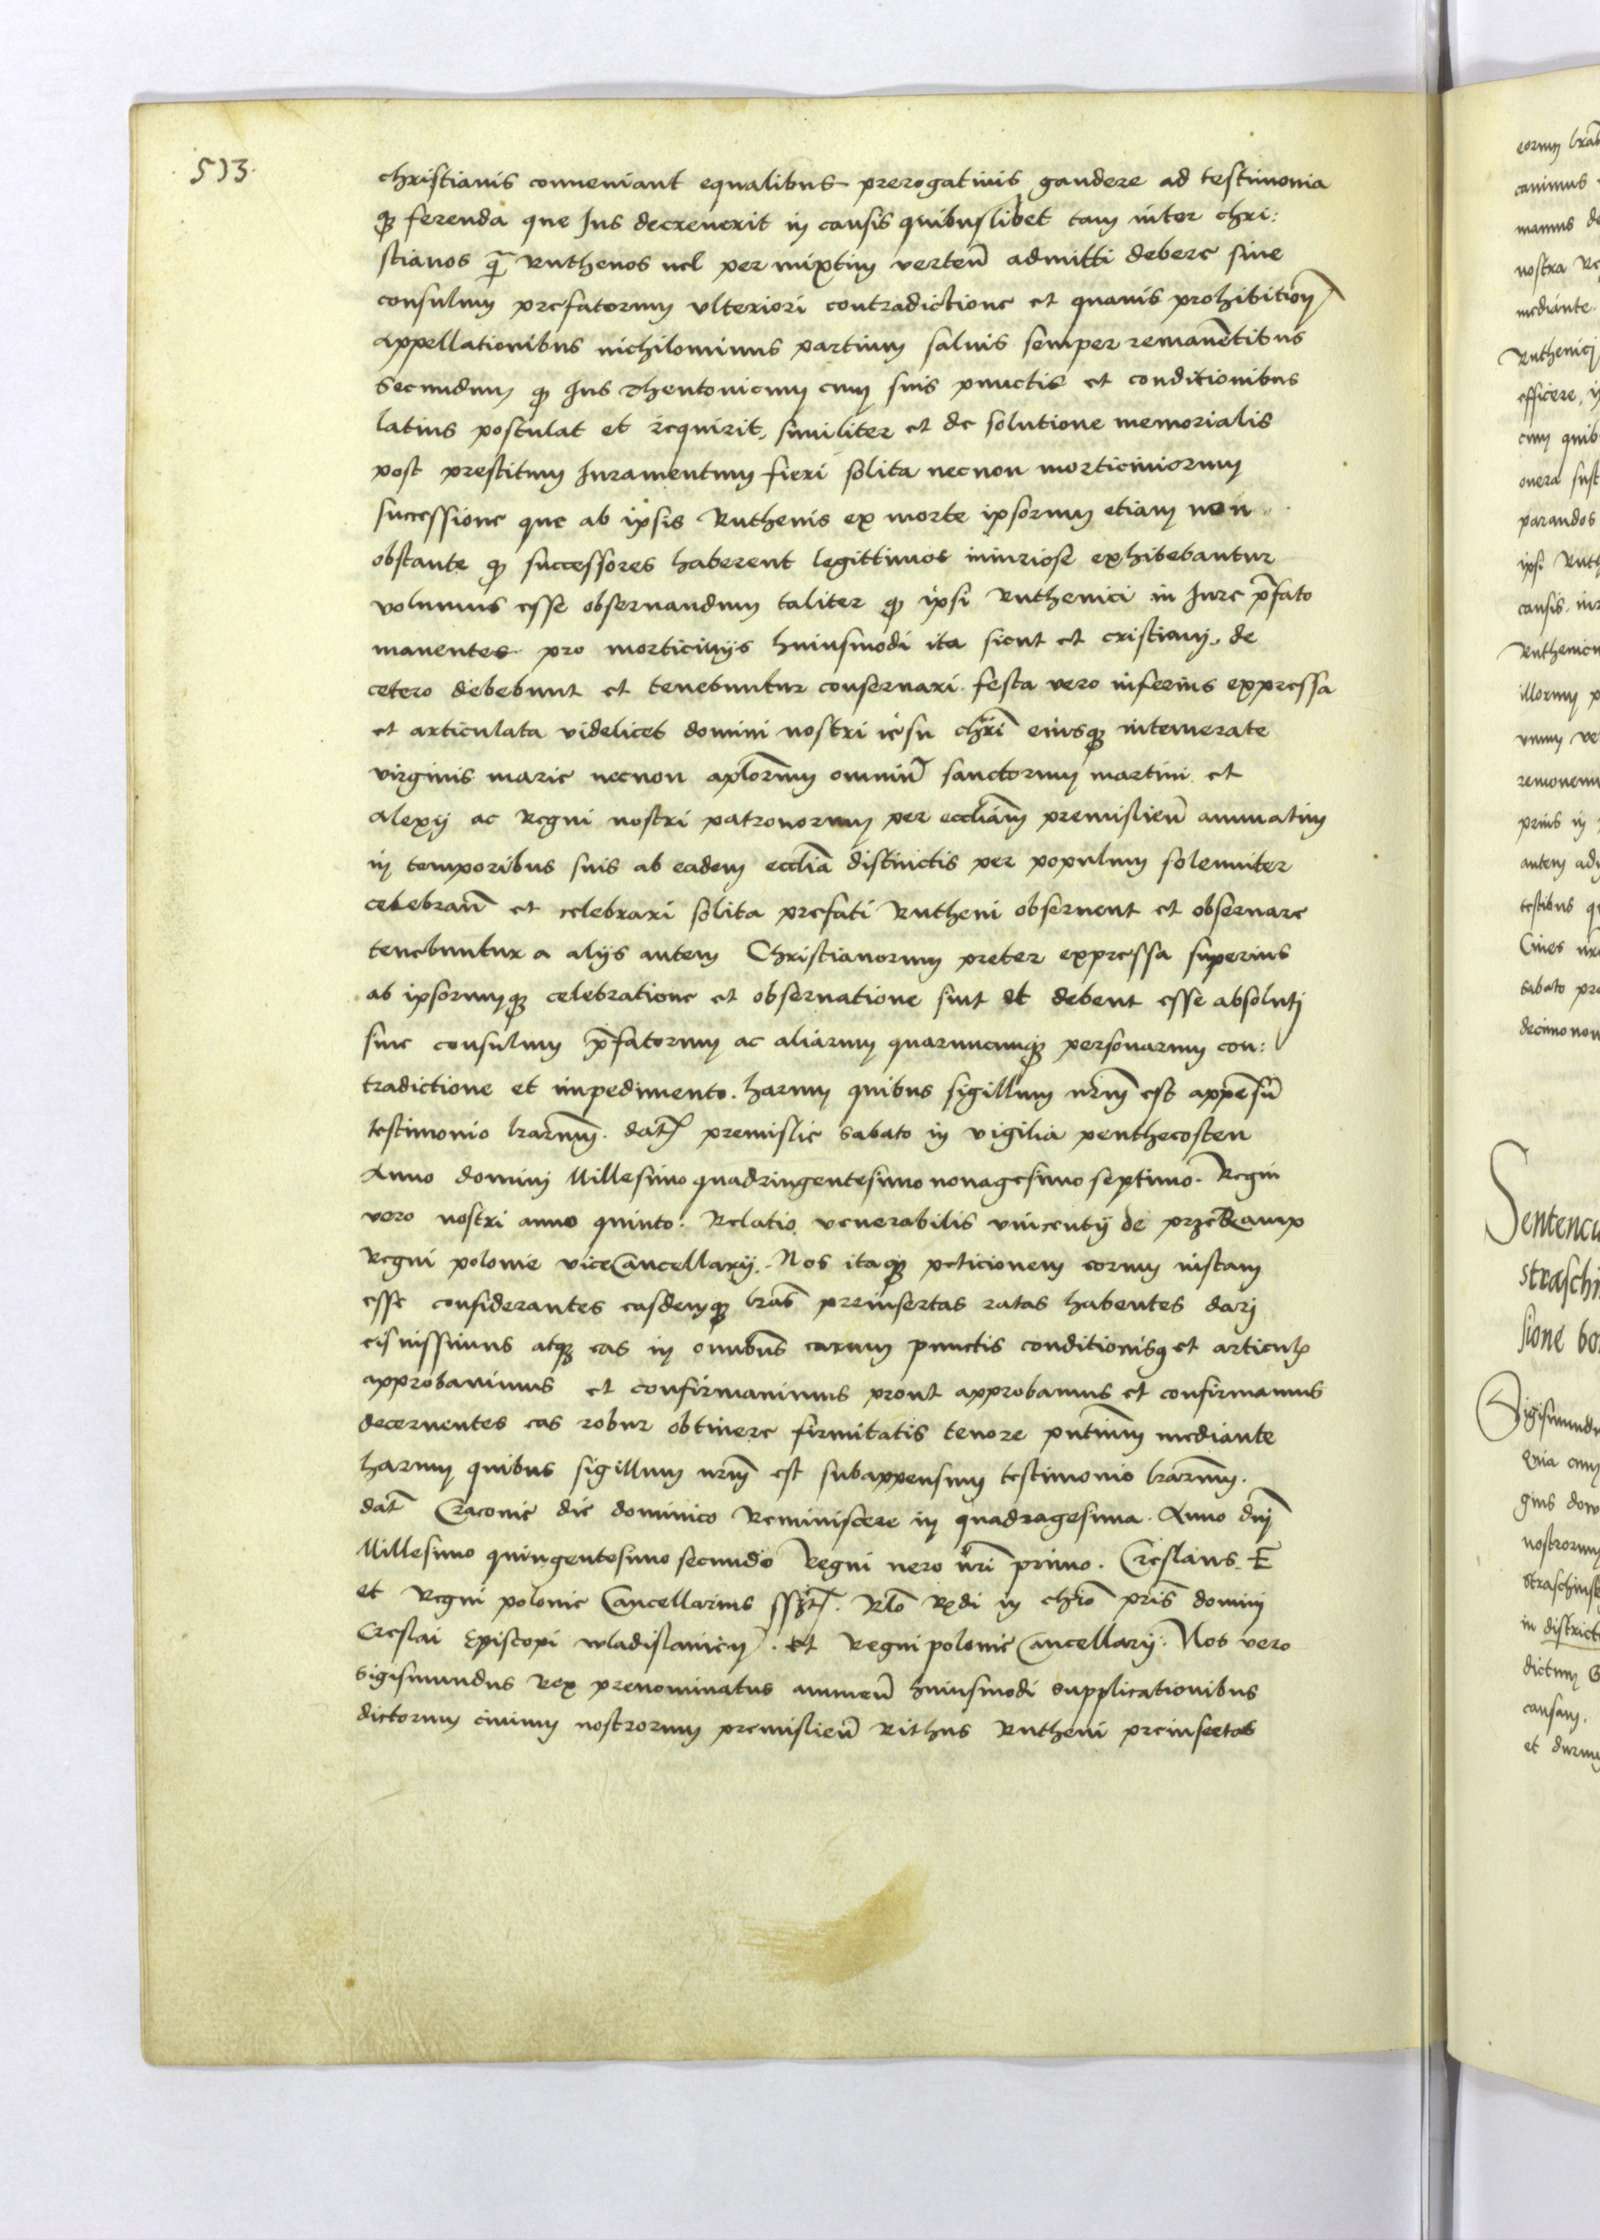 513.
christianis conueniant equalibus prerogatiuis gaudere ad testimonia
qȝ ferenda que Jus decreuerit in causis quibuslibet tam inter chri:
stianos q̄ Ruthenos uel per mixtim verteñ admitti debere sine
consulum prefatorum vlteriori contradictione et quauis prohibitioñ
appellationibus nichilominus partium saluis semper remanētibus
Secundum qȝ Jus Theutonicum cum suis punctis et conditionibus
latius postulat et requirit, similiter et de solutione memorialis
post prestitum Juramentum fieri solita necnon morticiniorum
successione que ab ipsis Ruthenis ex morte ipsorum etiam non
obstante qȝ successores haberent legittimos iniuriose exhibebantur
volumus esse obseruandum taliter qȝ ipsi Ruthenici in Jure p̄fato
manentes pro morticinijs huiusmodi ita sicut et cristiani, de
cetero debebunt et tenebuntur conseruari. festa vero inferius expressa
et articulata videlicet domini nostri iesu chri̅ eiusqȝ intemerate
virginis marie necnon apl̄orum omniū sanctorum martini et
alexij ac Regni nostri patronorum per eccl̄iam premislieñ annuatim
in temporibus suis ab eadem eccl̄ia distinctis per populum solenniter
celebrañ et celebrari solita prefati Rutheni obseruent et obseruare
tenebuntur a alijs autem Christianorum preter expressa superius
ab ipsorumqȝ celebratione et obseruatione sint et debent esse absoluti
sine consulum p̄fatorum ac aliarum quarumcunqȝ personarum con:
tradictione et impedimento. harum quibus sigillum nr̄m est appensū
testimonio l̄rarum. dat̄ premislie sabato in vigilia penthecosten
Anno domini Millesimo quadringentesimo nonagesimo septimo. Regni
vero nostri anno quinto. Relatio venerabilis vincentij de przeramp
Regni polonie viceCancellarij. Nos itaqȝ peticionem eorum iustam
esse considerantes easdemqȝ l̄ras preinsertas ratas habentes dari
eis iussimus atqȝ eas in om̄ibus earum punctis conditionisȝ et articul̄
approbauimus et confirmauimus prout approbamus et confirmamus
decernentes eas robur obtinere firmitatis tenore pn̄tium mediante
harum quibus sigillum nr̄m est subappensum testimonio l̄rarum.
dat̄ Cracouie die dominico Reminiscere in quadragesima. Anno dn̄i
Millesimo quingentesimo secundo Regni uero nr̄i primo. Creslaus E
et Regni polonie Cancellarius sszt̄. Rl̄o Rx̄di in chr̄o pr̄is domini
Creslai Episcopi wladislauieñ. et Regni polonie Cancellarij. Nos vero
Sigismundus Rex prenominatus annueñ huiusmodi supplicationibus
dictorum ciuium nostrorum premislieñ Rithus Rutheni preinsertas